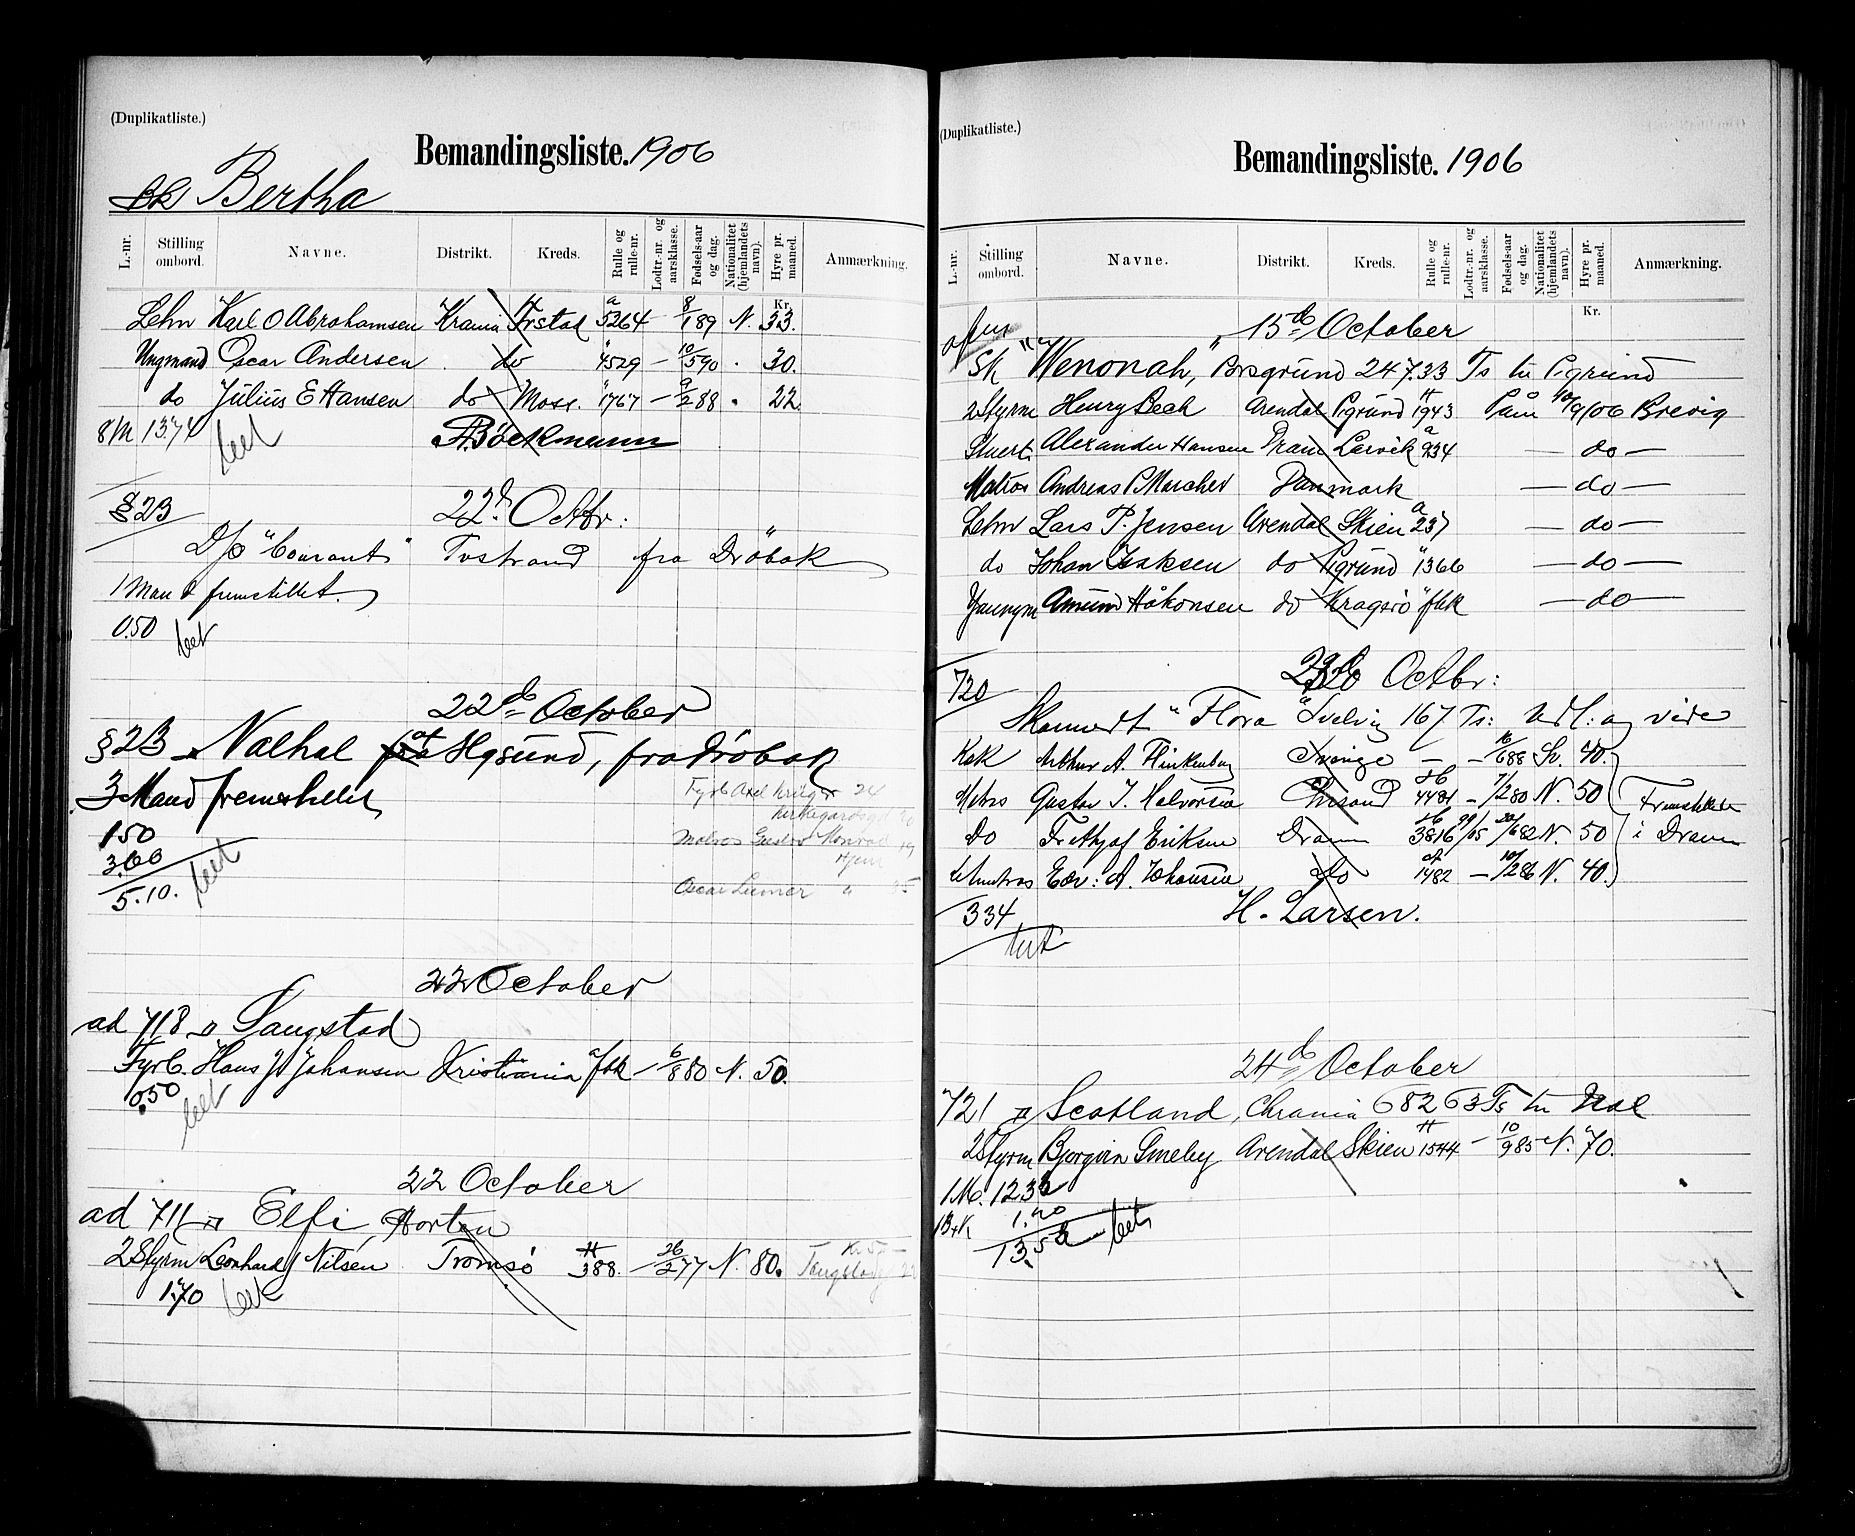 (Duplikatliste.)
Bemandingsliste. 1906
Bertha
L.-nr. Stilling ombord. Navne. Distrikt. Kreds. Rulle og rulle-nr. Lodtr-nr. og aarsklasse. Fødsels-aar og dag. Nationalitet (hjemlandets navn). Hyre pr. maaned. Anmærkning.
Kr.
Lehm Karl O Abrahamsen Krania Frstad a 5264 — 8/1 89 N. 33.
Ungmand Oscar Andersen do " 4529 — 10/5 90 . 30.
do Julius E Hansen do Moss. " 1767 — 9/2 88 . 22.
8 M 13.74
§ 23 22d Octbr:
D/s "Courant" Tvstrand fra Drøbak
1 Mand fremstillet.
0.50
22de October
§ 23 Nalhal af Hgsund, fra Drøbak
3 Mand fremstillet
Fyrb Axel Krüger 24
Kirkegaardsgd 20
Matros Gustav Konrad 19
Oscar
1.50
3.60
5.10.
22 October
ad 718 Langstad
Fyrb. Hans Johansen Kristiania a fbk — 6/8 80 N. 50.
0.50
22 October
ad 711 Elfi, Horten
2 Styrm Leonhard Nilsen Tromsø H 388. — 26/2 77 N. 80.
1.70
(Duplikatliste.)
Bemandingsliste. 1906
L.-nr. Stilling ombord. Navne. Distrikt. Kreds. Rulle og rulle-nr. Lodtr-nr. og aarsklasse. Fødsels-aar og dag. Nationalitet (hjemlandets navn). Hyre pr. maaned. Anmærkning.
Kr.
15de October
Sk "Wenonah", Prsgrund 247.33 Ts til Pgrund
2 Styrm Henry Bech Arendal Pgrund H 1943 Paam 10/9/06 Brevig
Stuert. Alexander Hansen Dram Larvik a 934 — do —
Matros Andreas P Marcher Danmark — do —
Lehm Lars P. Jensen Arendal Skien a 237 — do —
do Johan Isaksen do Pgrund " 1366 — do —
Jungm Amund Håkonsen do Kragerø " fbk — do —
720 Octbr:
Skonnert "Flora" Svelvig 167 Ts: Udl: og vide
Kok Arthur A. Sverige — — 16/6 88 Sv. 40.
Matros Gustav J. Halvorsen Chrsand 4481 — 7/2 80 N. 50
Do Frithjof Eriksen Dramm 3816 82 N. 50
Edv: A. Johansen do 1482 — 10/2 86 N. 40.
Fremstillet i Dramm
334 H. Larsen.
24de October
721 Scotland, Chrania 682 63 Ts til
2 Styrm Bjorgvin Gmeby Arendal Skien H 1544 — 10/9 85 N. 70.
1 M. 12.32
1.20
13.52